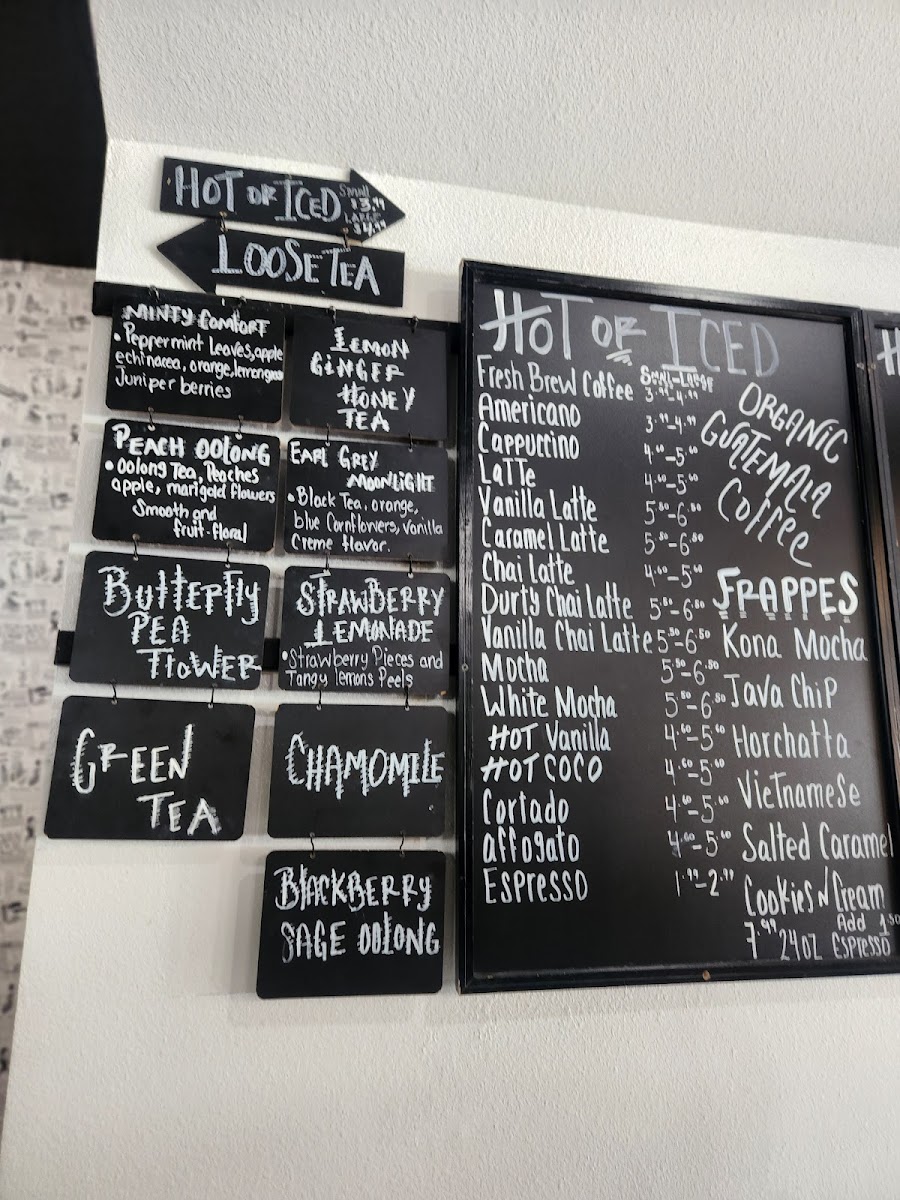 HOT OR ICED SMALL $3.99 LARGE $4.99
LOOSE TEA
MINTY COMFORT
• Peppermint Leaves, apple
echinacea, orange, lemongrass
Juniper berries
LEMON
GINGER
HONEY
TEA
PEACH OOLONG
• Oolong Tea, Peaches
apple, marigold flowers
Smooth and
fruit-floral
EARL GREY
MOONLIGHT
• Black Tea, orange,
blue Cornflowers, vanilla
Creme flavor.
BUTTERFLY
PEA
FLOWER
STRAWBERRY
LEMONADE
• Strawberry Pieces and
Tangy lemons Peels
GREEN
TEA
CHAMOMILE
BLACKBERRY
SAGE OOLONG
HOT OR ICED
Small-Large
Fresh Brew Coffee 3.99-4.99
Americano 3.99-4.99
Cappuccino 4.60-5.60
LaTTe 4.60-5.60
Vanilla Latte 5.80-6.80
Caramel Latte 5.80-6.80
Chai Latte 4.60-5.60
Durty Chai Latte 5.80-6.80
Vanilla Chai Latte 5.50-6.50
Mocha 5.80-6.80
White Mocha 5.80-6.80
HOT Vanilla 4.60-5.60
HOT COCO 4.60-5.60
Cortado 4.60-5.60
affogato 4.60-5.60
Espresso 1.99-2.99
ORGANIC
GUATEMALA
Coffee
FRAPPES
Kona Mocha
Java Chip
Horchatta
VieTnamese
Salted Caramel
Cookies N Cream
7.99 24oz
Add 1.50
Espresso
H